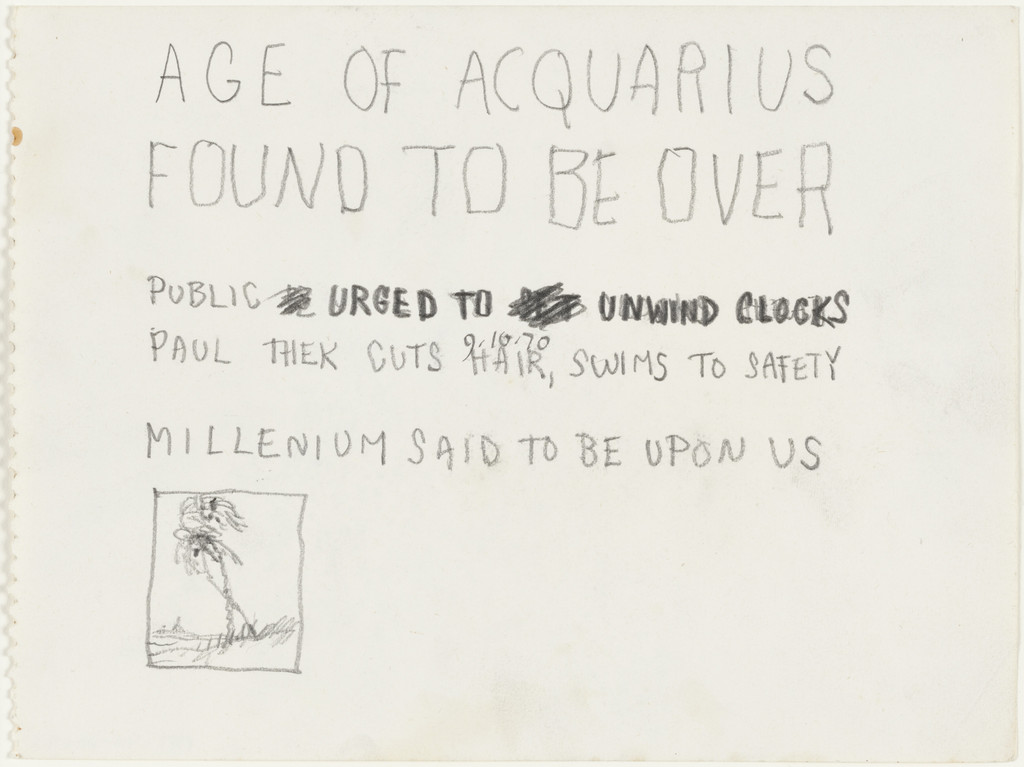 AGE OF ACQUARIUS
FOUND TO BE OVER
PUBLIC URGED TO UNWIND CLOCKS
9·10·70
PAUL THEK CUTS HAIR, SWIMS TO SAFETY
MILLENIUM SAID TO BE UPON US